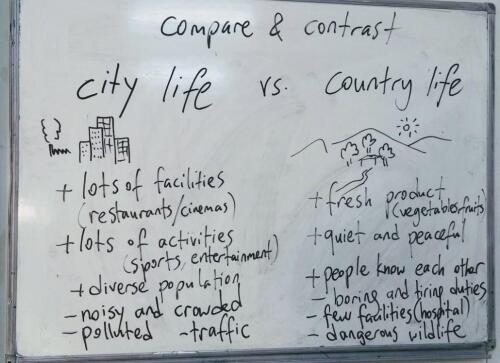 Compare & contrast
city life vs. country life
+ lots of facilities
(restaurants/cinemas)
+ lots of activities
(sports, entertainment)
+ diverse population
- noisy and crowded
- polluted - traffic
+ fresh product
(vegetables, fruits)
+ quiet and peaceful
+ people know each other
- boring and tiring duties
- few facilities (hospital)
- dangerous wildlife